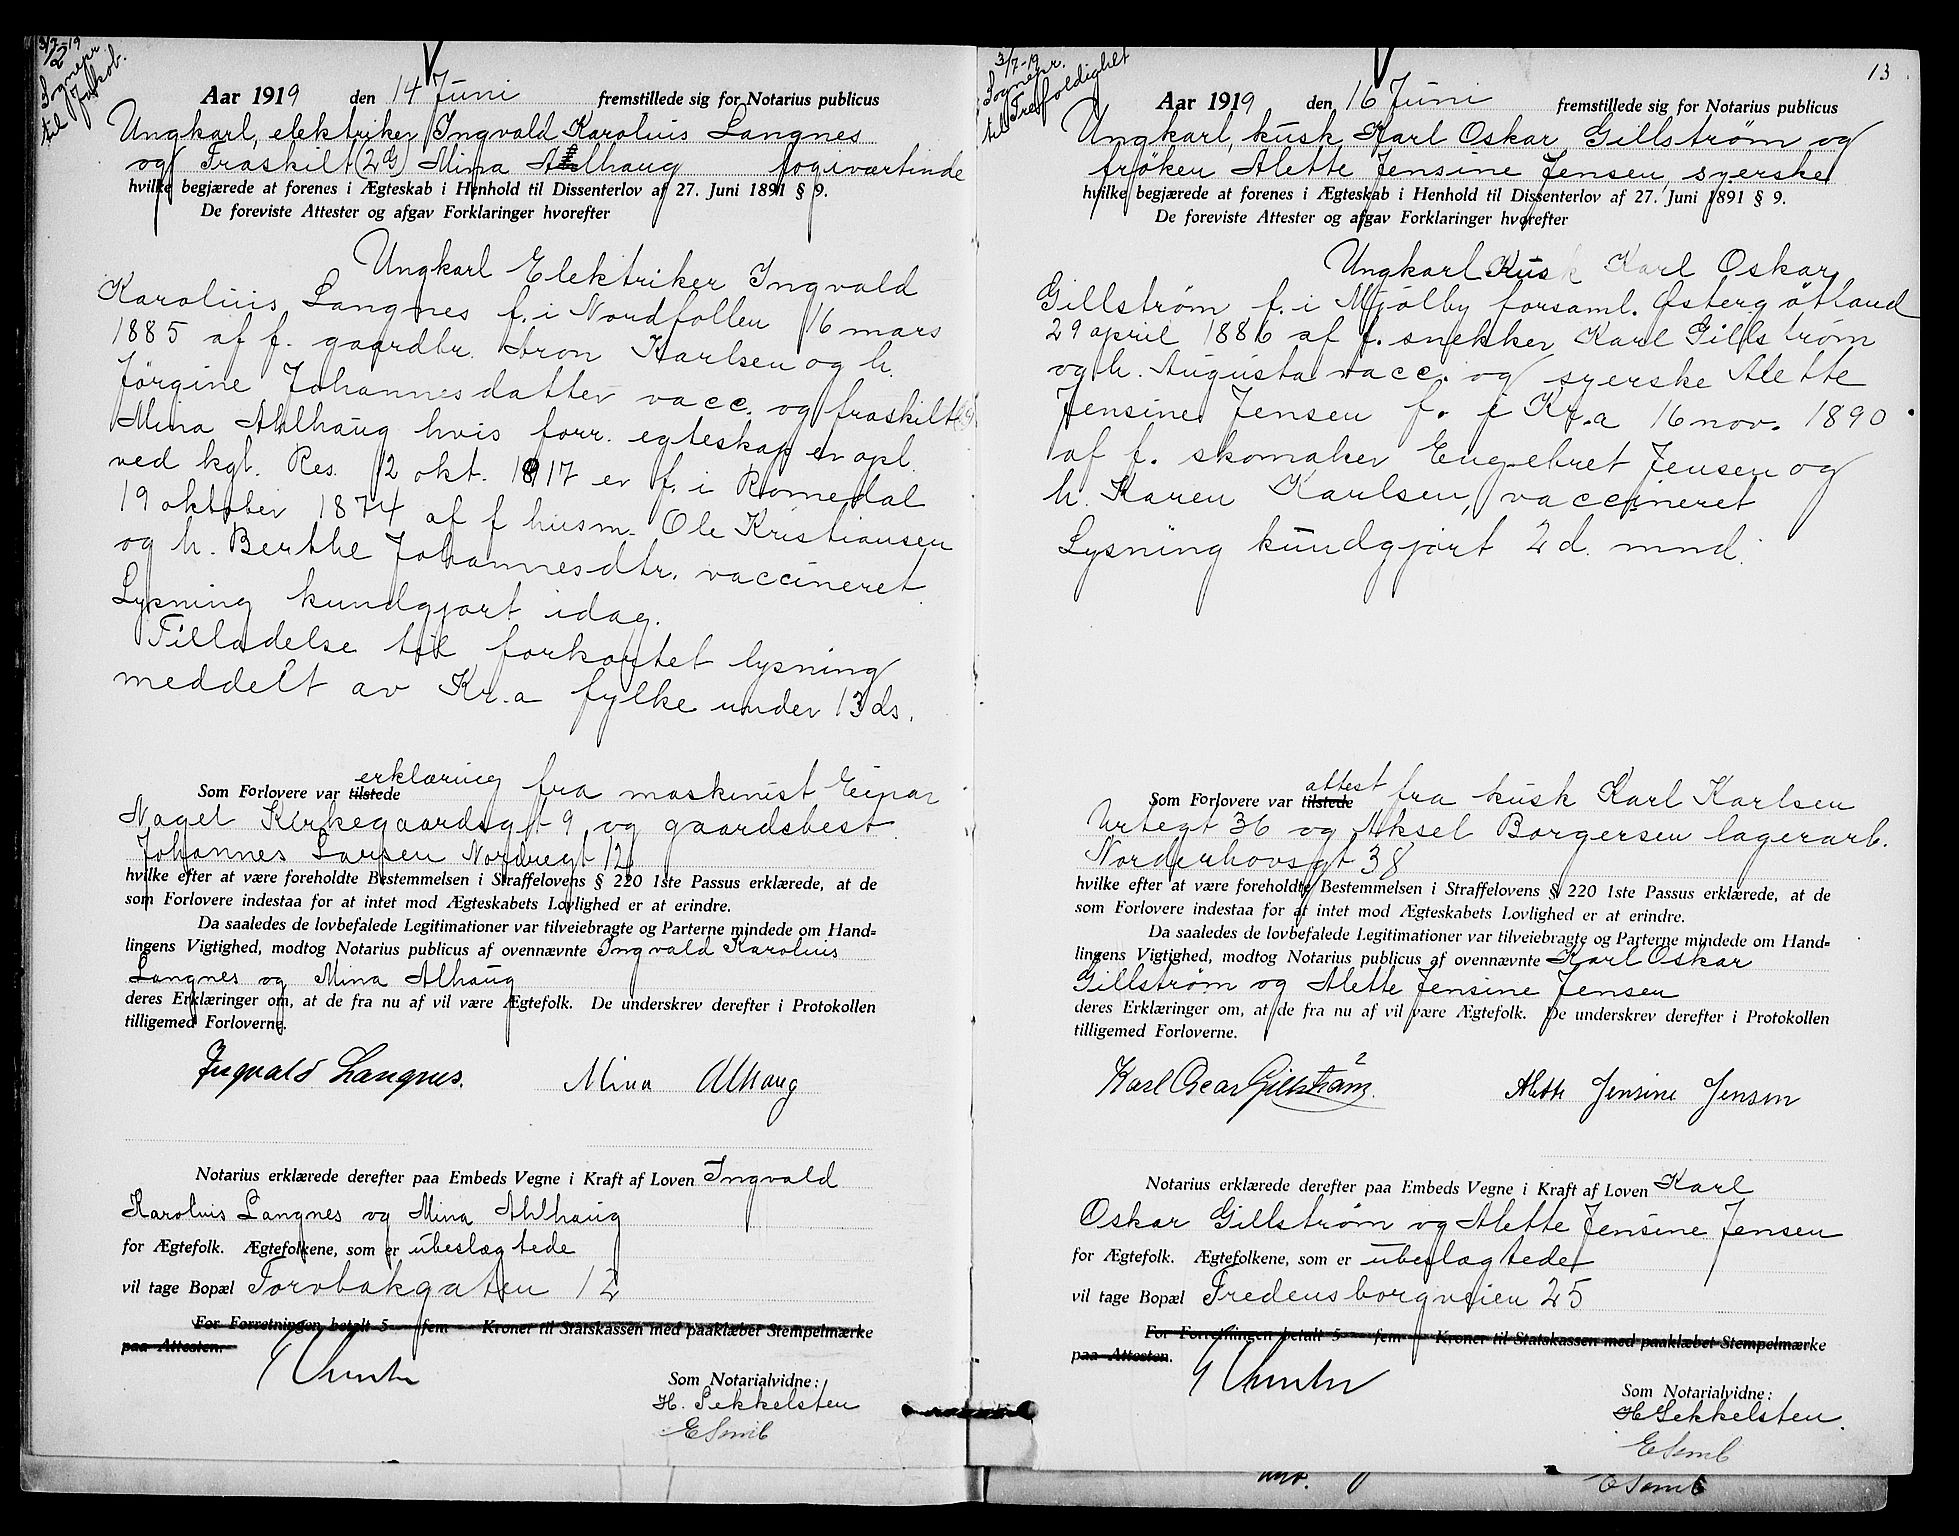 3/7-19
12
Sognepr.
til Jakob.
Aar 1919 den 14 Juni fremstillede sig for Notarius publicus
Ungkarl, elektriker Ingvald Karolius Langnes
og Fraskilt (2G) Mina Ahlhaug logivertinde
hvilke begjærede at forenes i Ægteskab i Henhold til Dissenterlov af 27. Juni 1891 § 9.
De foreviste Attester og afgav Forklaringer hvorefter
Ungkarl Elektriker Ingvald
Karolius Langnes f. i Nordfollen 16 mars
1885 af f. gaardbr. Aron Karlsen og h.
Jörgine Johannesdatter vacc. og fraskilt (2G)
Mina Ahlhaug hvis forr. egteskap er opl.
ved kgl. Res. 12 okt. 1917 er f. i Romedal
19 oktober 1874 af f husm. Ole Kristiansen
og h. Berthe Johannesdtr. vaccineret
Lysning kundgjort idag.
Tilladelse til forkortet lysning
meddelt av Kr.a fylke under 13 ds.
Som Forlovere var tilstede erklæring fra maskinist Einar
Nagel Kirkegaardsgt 9 og gaardsbest.
Johannes Larsen Nordregt 12
hvilke efter at være foreholdte Bestemmelsen i Straffelovens § 220 1ste Passus erklærede, at de
som Forlovere indestaa for at intet mod Ægteskabets Lovlighed er at erindre.
Da saaledes de lovbefalede Legitimationer var tilveiebragte og Parterne mindede om Hand=
lingens Vigtighed, modtog Notarius publicus af ovennævnte Ingvald Karolius
Langnes og Mina Alhaug
deres Erklæringer om, at de fra nu af vil være Ægtefolk. De underskrev derefter i Protokollen
tilligemed Forloverne.
Ingvald Langnes. Mina Alhaug
Notarius erklærede derefter paa Embeds Vegne i Kraft af Loven Ingvald
Karolius Langnes og Mina Ahlhaug
for Ægtefolk. Ægtefolkene, som er ubeslægtede
vil tage Bopæl Torvbakgaten 12
For Forretningen betalt 5 — fem — Kroner til Statskassen med paaklæbet Stempelmærke
paa Attesten.
Som Notarialvidne:
H. Sekkelsten
E Semb
13
3/7-19
Sognepr.
til Trefoldighet
Aar 1919 den 16 Juni fremstillede sig for Notarius publicus
Ungkarl, kusk Karl Oskar Gillström og
fröken Alette Jensine Jensen, syerske
hvilke begjærede at forenes i Ægteskab i Henhold til Dissenterlov af 27. Juni 1891 § 9.
De foreviste Attester og afgav Forklaringer hvorefter
Ungkarl Kusk Karl Oskar
Gillström f. i Mjölby forsaml. Østergötland
29 april 1886 af f. snekker Karl Gillström
og h. Augusta vacc. og syerske Alette
Jensine Jensen f. i Kr.a 16 nov. 1890
af f. skomaker Engebret Jensen og
h. Karen Karlsen, vaccineret
Lysning kundgjort 2 d. mnd.
Som Forlovere var tilstede attest fra kusk Karl Karlsen
Urtegt 36 og Aksel Borgersen lagerarb.
Norderhovsgt 38
hvilke efter at være foreholdte Bestemmelsen i Straffelovens § 220 1ste Passus erklærede, at de
som Forlovere indestaa for at intet mod Ægteskabets Lovlighed er at erindre.
Da saaledes de lovbefalede Legitimationer var tilveiebragte og Parterne mindede om Hand=
lingens Vigtighed, modtog Notarius publicus af ovennævnte Karl Oskar
Gillström og Alette Jensine Jensen
deres Erklæringer om, at de fra nu af vil være Ægtefolk. De underskrev derefter i Protokollen
tilligemed Forloverne.
Karl Oscar Gillström. Alette Jensine Jensen
Notarius erklærede derefter paa Embeds Vegne i Kraft af Loven Karl
Oskar Gillström og Alette Jensine Jensen
for Ægtefolk. Ægtefolkene, som er ubeslægtede
vil tage Bopæl Fredensborgveien 25
For Forretningen betalt 5 — fem — Kroner til Statskassen med paaklæbet Stempelmærke
paa Attesten.
Som Notarialvidne:
H Sekkelsten
E Semb
E Semb